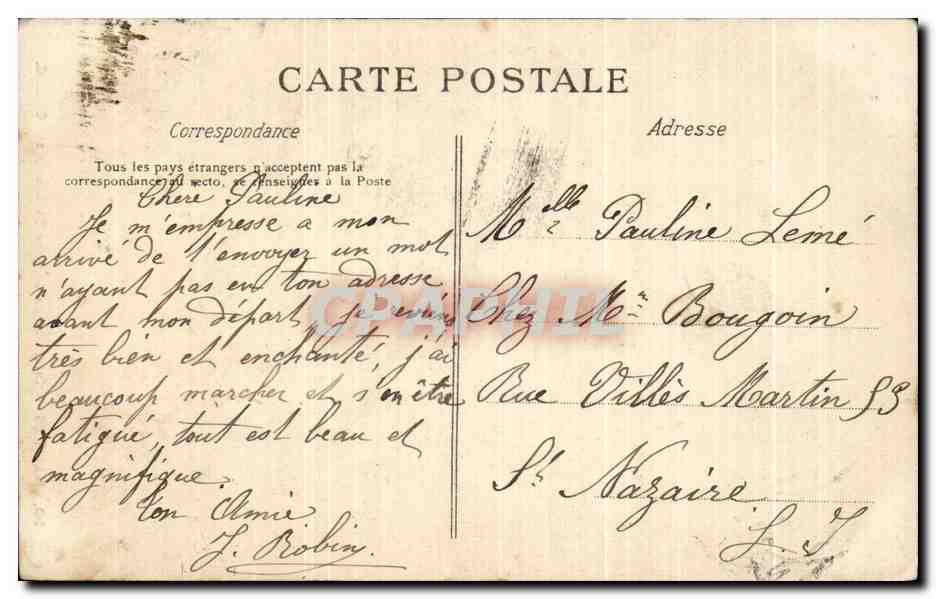 CARTE POSTALE
Correspondance
Tous les pays étrangers n'acceptent pas la
correspondance au recto, se renseigner à la Poste
Chere Pauline
Je m'empresse a mon
arrivé de t'envoyez un mot
n'ayant pas eu ton adresse
avant mon départ, je reviens
très bien et enchanté, j'ai
beaucoup marcher et s'en être
fatigué, tout est beau et
magnifique.
ton Amie
J. Robin.
Adresse
Melle Pauline Lemé
Chez Mr Bougoin
Rue Villès Martin 53
St Nazaire
L. I
CPAPHIL